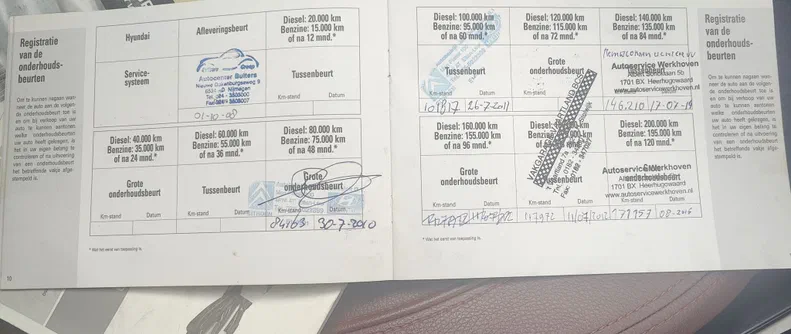 Registratie
van de
onderhouds-
beurten
Om te kunnen nagaan wan-
neer de auto aan de volgen-
de onderhoudsbeurt toe is
en om bij verkoop van uw
auto te kunnen aantonen
welke onderhoudsbeurten
uw auto heeft gekregen, is
het in uw eigen belang te
controleren of na uitvoering
van een onderhoudsbeurt
het betreffende vakje afge-
stempeld is.
Hyundai
Service-
systeem
Afleveringsbeurt
Autocenter Bulters
Nieuwe Dukenburgseweg 9
Nijmegen
01-10-08
Diesel: 20.000 km
Benzine: 15.000 km
of na 12 mnd.*
Tussenbeurt
Km-stand Datum
Diesel: 40.000 km
Benzine: 35.000 km
of na 24 mnd.*
Grote
onderhoudsbeurt
Km-stand Datum
Diesel: 60.000 km
Benzine: 55.000 km
of na 36 mnd.*
Tussenbeurt
Km-stand Datum
Diesel: 80.000 km
Benzine: 75.000 km
of na 48 mnd.*
Grote
onderhoudsbeurt
Km-stand Datum
84163 30-7-2010
* Wat het eerst van toepassing is.
10
Diesel: 100.000 km
Benzine: 95.000 km
of na 60 mnd.*
Tussenbeurt
Km-stand Datum
101817 26-7-2011
Diesel: 120.000 km
Benzine: 115.000 km
of na 72 mnd.*
Grote
onderhoudsbeurt
Km-stand
Diesel: 140.000 km
Benzine: 135.000 km
of na 84 mnd.*
Autoservice Werkhoven
Albert Schoklaan 5b
1701 BX Heerhugowaard
www.autoservicewerkhoven.nl
146.210 17-07-
Diesel: 160.000 km
Benzine: 155.000 km
of na 96 mnd.*
Grote
onderhoudsbeurt
Km-stand Datum
VAKGARAGE
Km-stand Datum
117972 11/07/2012
Diesel: 200.000 km
Benzine: 195.000 km
of na 120 mnd.*
Autoservice Werkhoven
onderhoudsbeurt
1701 BX Heerhugowaard
www.autoservicewerkhoven.nl
Km-stand Datum
08-2016
* Wat het eerst van toepassing is.
Registratie
van de
onderhouds-
beurten
Om te kunnen nagaan wan-
neer de auto aan de volgen-
de onderhoudsbeurt toe is
en om bij verkoop van uw
auto te kunnen aantonen
welke onderhoudsbeurten
uw auto heeft gekregen, is
het in uw eigen belang te
controleren of na uitvoering
van een onderhoudsbeurt
het betreffende vakje afge-
stempeld is.